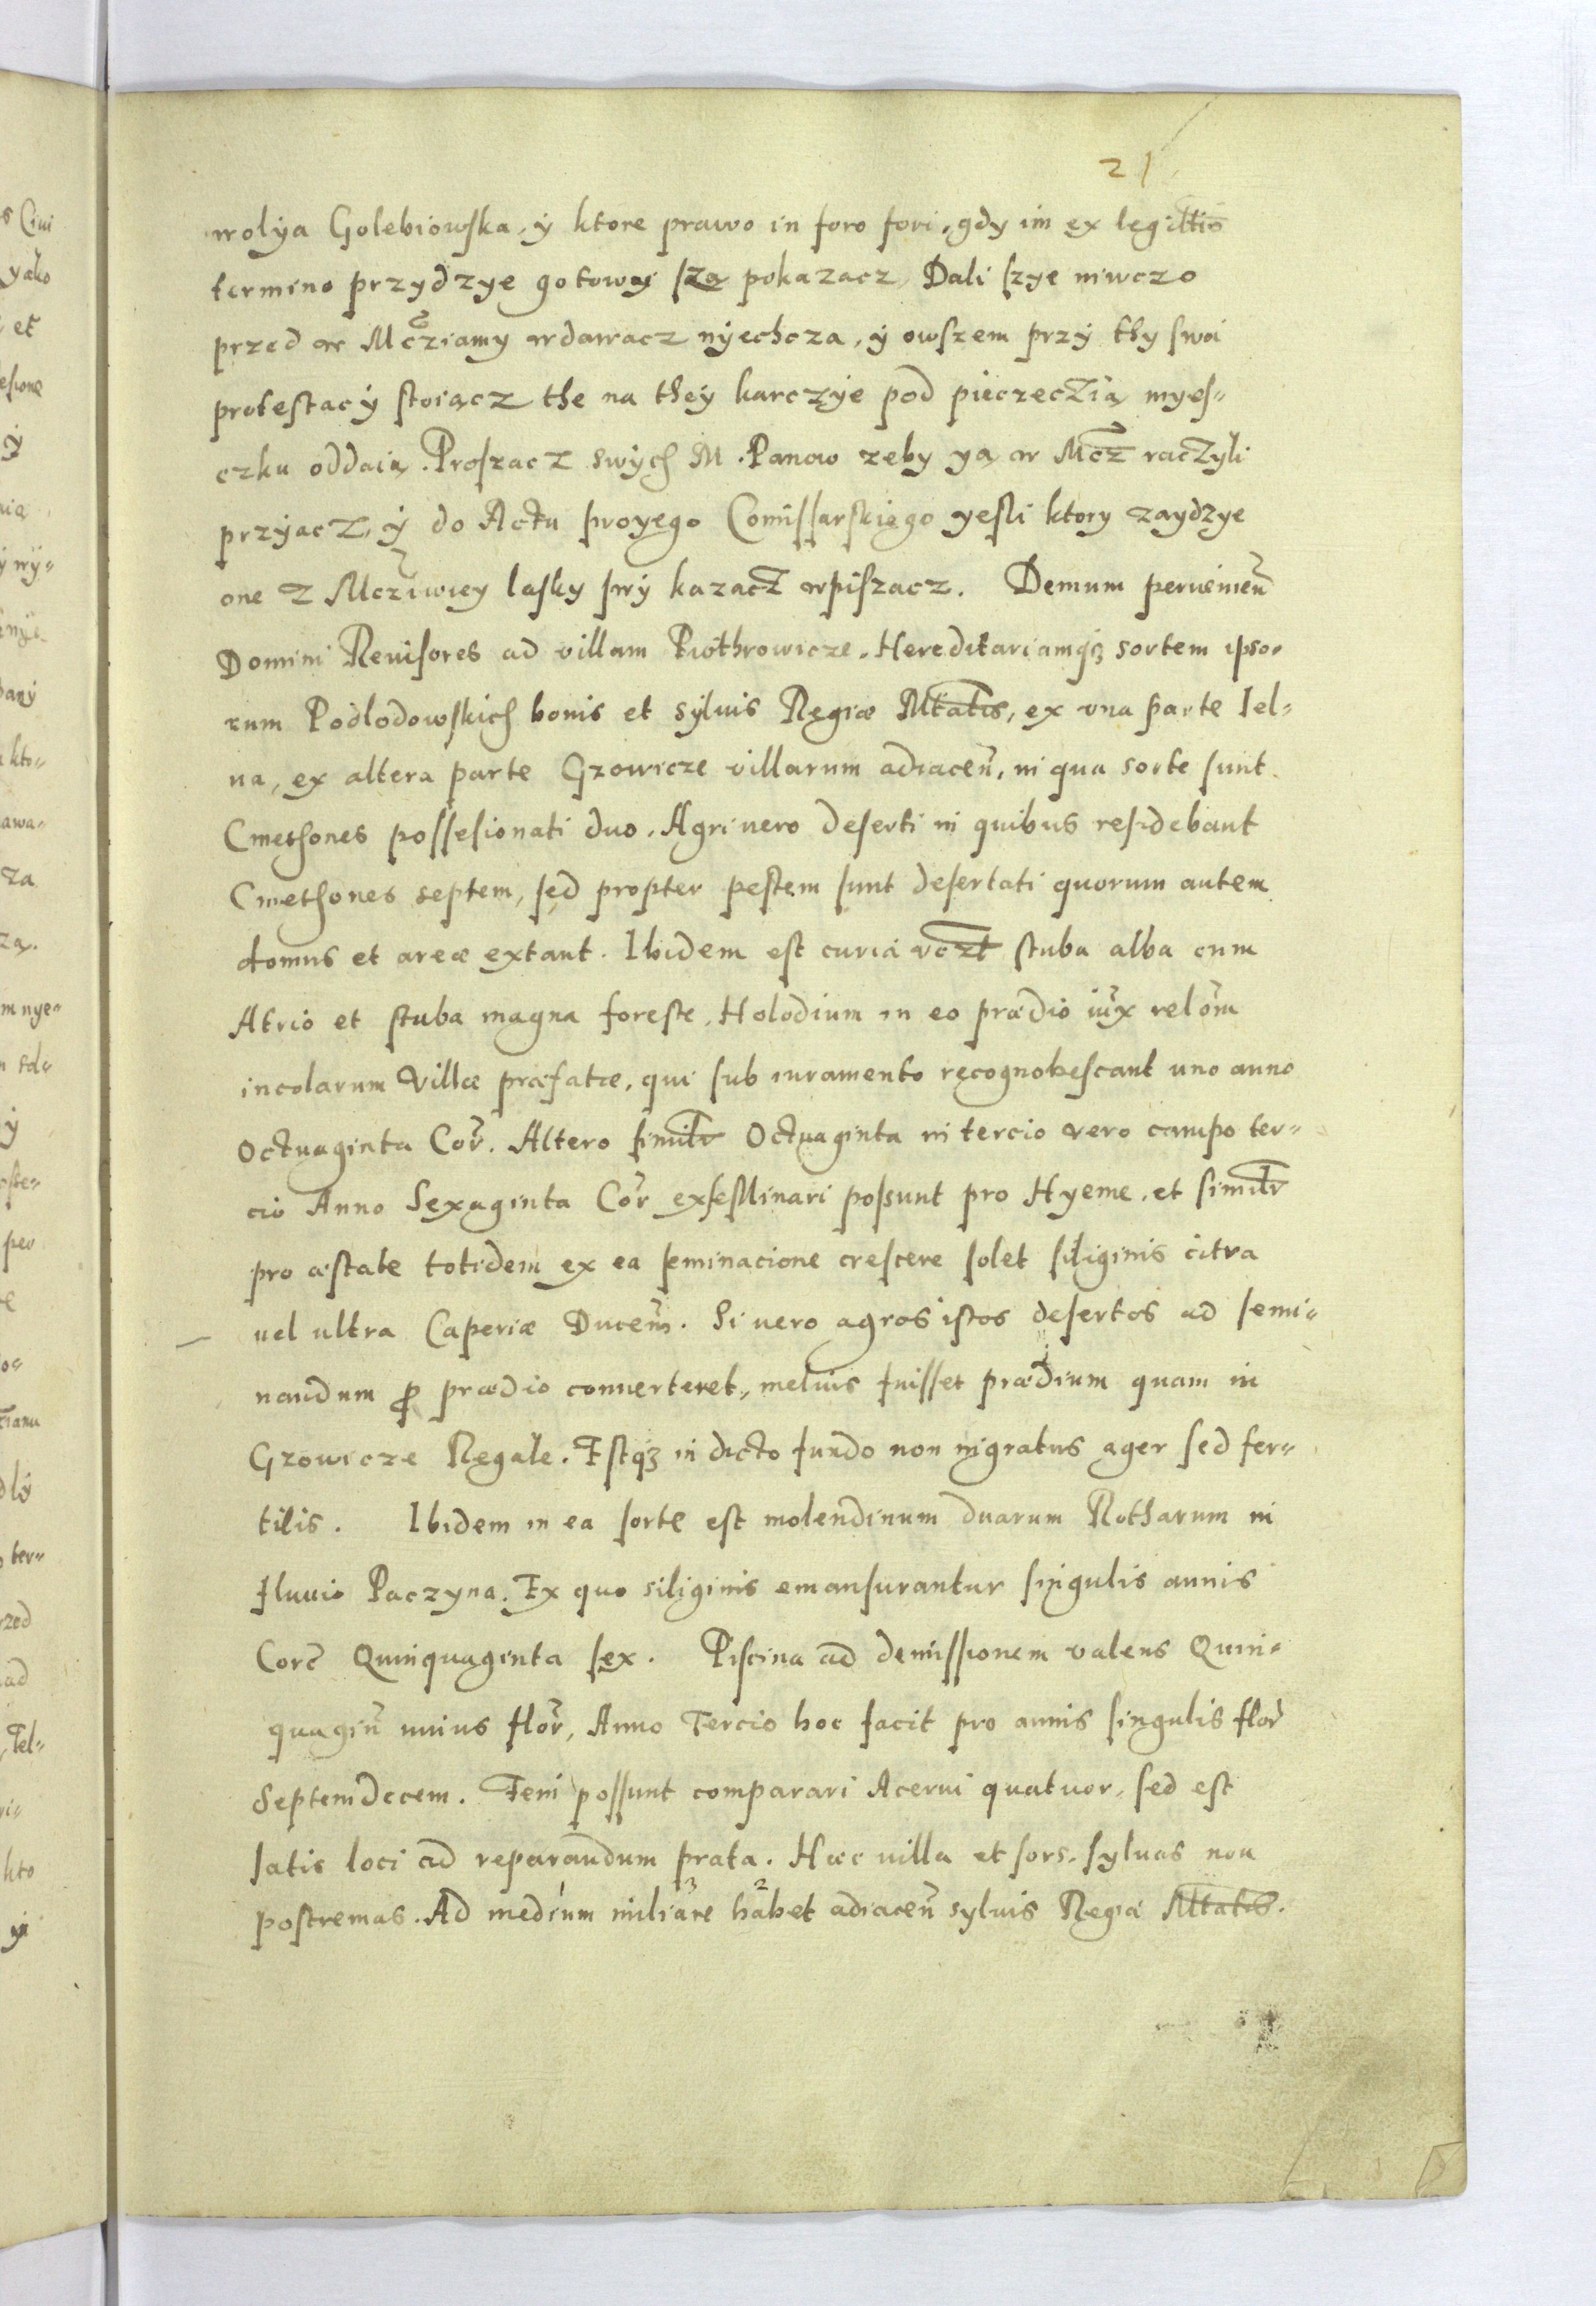 21
wolÿa Golebiowska, ÿ ktore prawo in foro fori, gdy im ex legittio
termino przydzye gotowy sza pokazacz, Dali szye niwczo
przed w Mcziamy wdawacz nÿechcza, ÿ owszem przÿ thy swoi
protestacÿ stoiącz the na theÿ karczÿe pod pieczeczią myes-
czku oddaią. Proszacz swÿch M. Panow zeby yą w Mcz raczÿli
przÿacz, ÿ do Actu swoyego Comissarskiego yesli ktory zaydzye
one z Mcziwiey lasky swÿ kazacz wpiszacz. Demum perueneū
Domini Reuisores ad villam Piothrowicze. Hereditariamqз sortem ipso-
rum Podlodowskich bonis et syluis Regiæ Mtatis, ex vna parte Iel-
na, ex altera parte Gzowicze villarum adiaceñ, in qua sorte sunt
Cmethones possesionati duo. Agri uero deserti in quibus residebant
Cmethones septem, sed propter pestem sunt desertati quorum autem
domus et areæ extant. Ibidem est curia vczt stuba alba cum
Atrio et stuba magna foreste, Holodium in eo prædio iux relom
incolarum Villæ præfatæ, qui sub iuramento recognobescant uno anno
Octuaginta Cor. Altero similr Octuaginta in tercio vero campo ter-
cio Anno Sexaginta Cor exseminari possunt pro Hyeme, et similr
pro æstate totidem ex ea seminacione crescere solet siliginis citra
uel ultra Caperiæ Duceñ. Si uero agros istos desertos ad semi-
nandum ꝓ prædio conuerteret, melius fuisset prædium quam in
Gzowicze Regale. Estqз in dicto fundo non nigratus ager sed fer-
tilis. Ibidem in ea sorte est molendinum duarum Rotharum in
fluuio Paczyna. Ex quo siliginis emansurantur singulis annis
Corc Quinquaginta sex. Piscina ad demissionem valens Quin-
quagiñ unius flor, Anno Tercio hoc facit pro annis singulis flor
Septemdecem. Feni possunt comparari Acerui quatuor, sed est
satis loci ad reparandum prata. Hæc uilla et sors, syluas non
postremas. Ad medium miliare habet adiaceñ syluis Regiæ Mtatis.